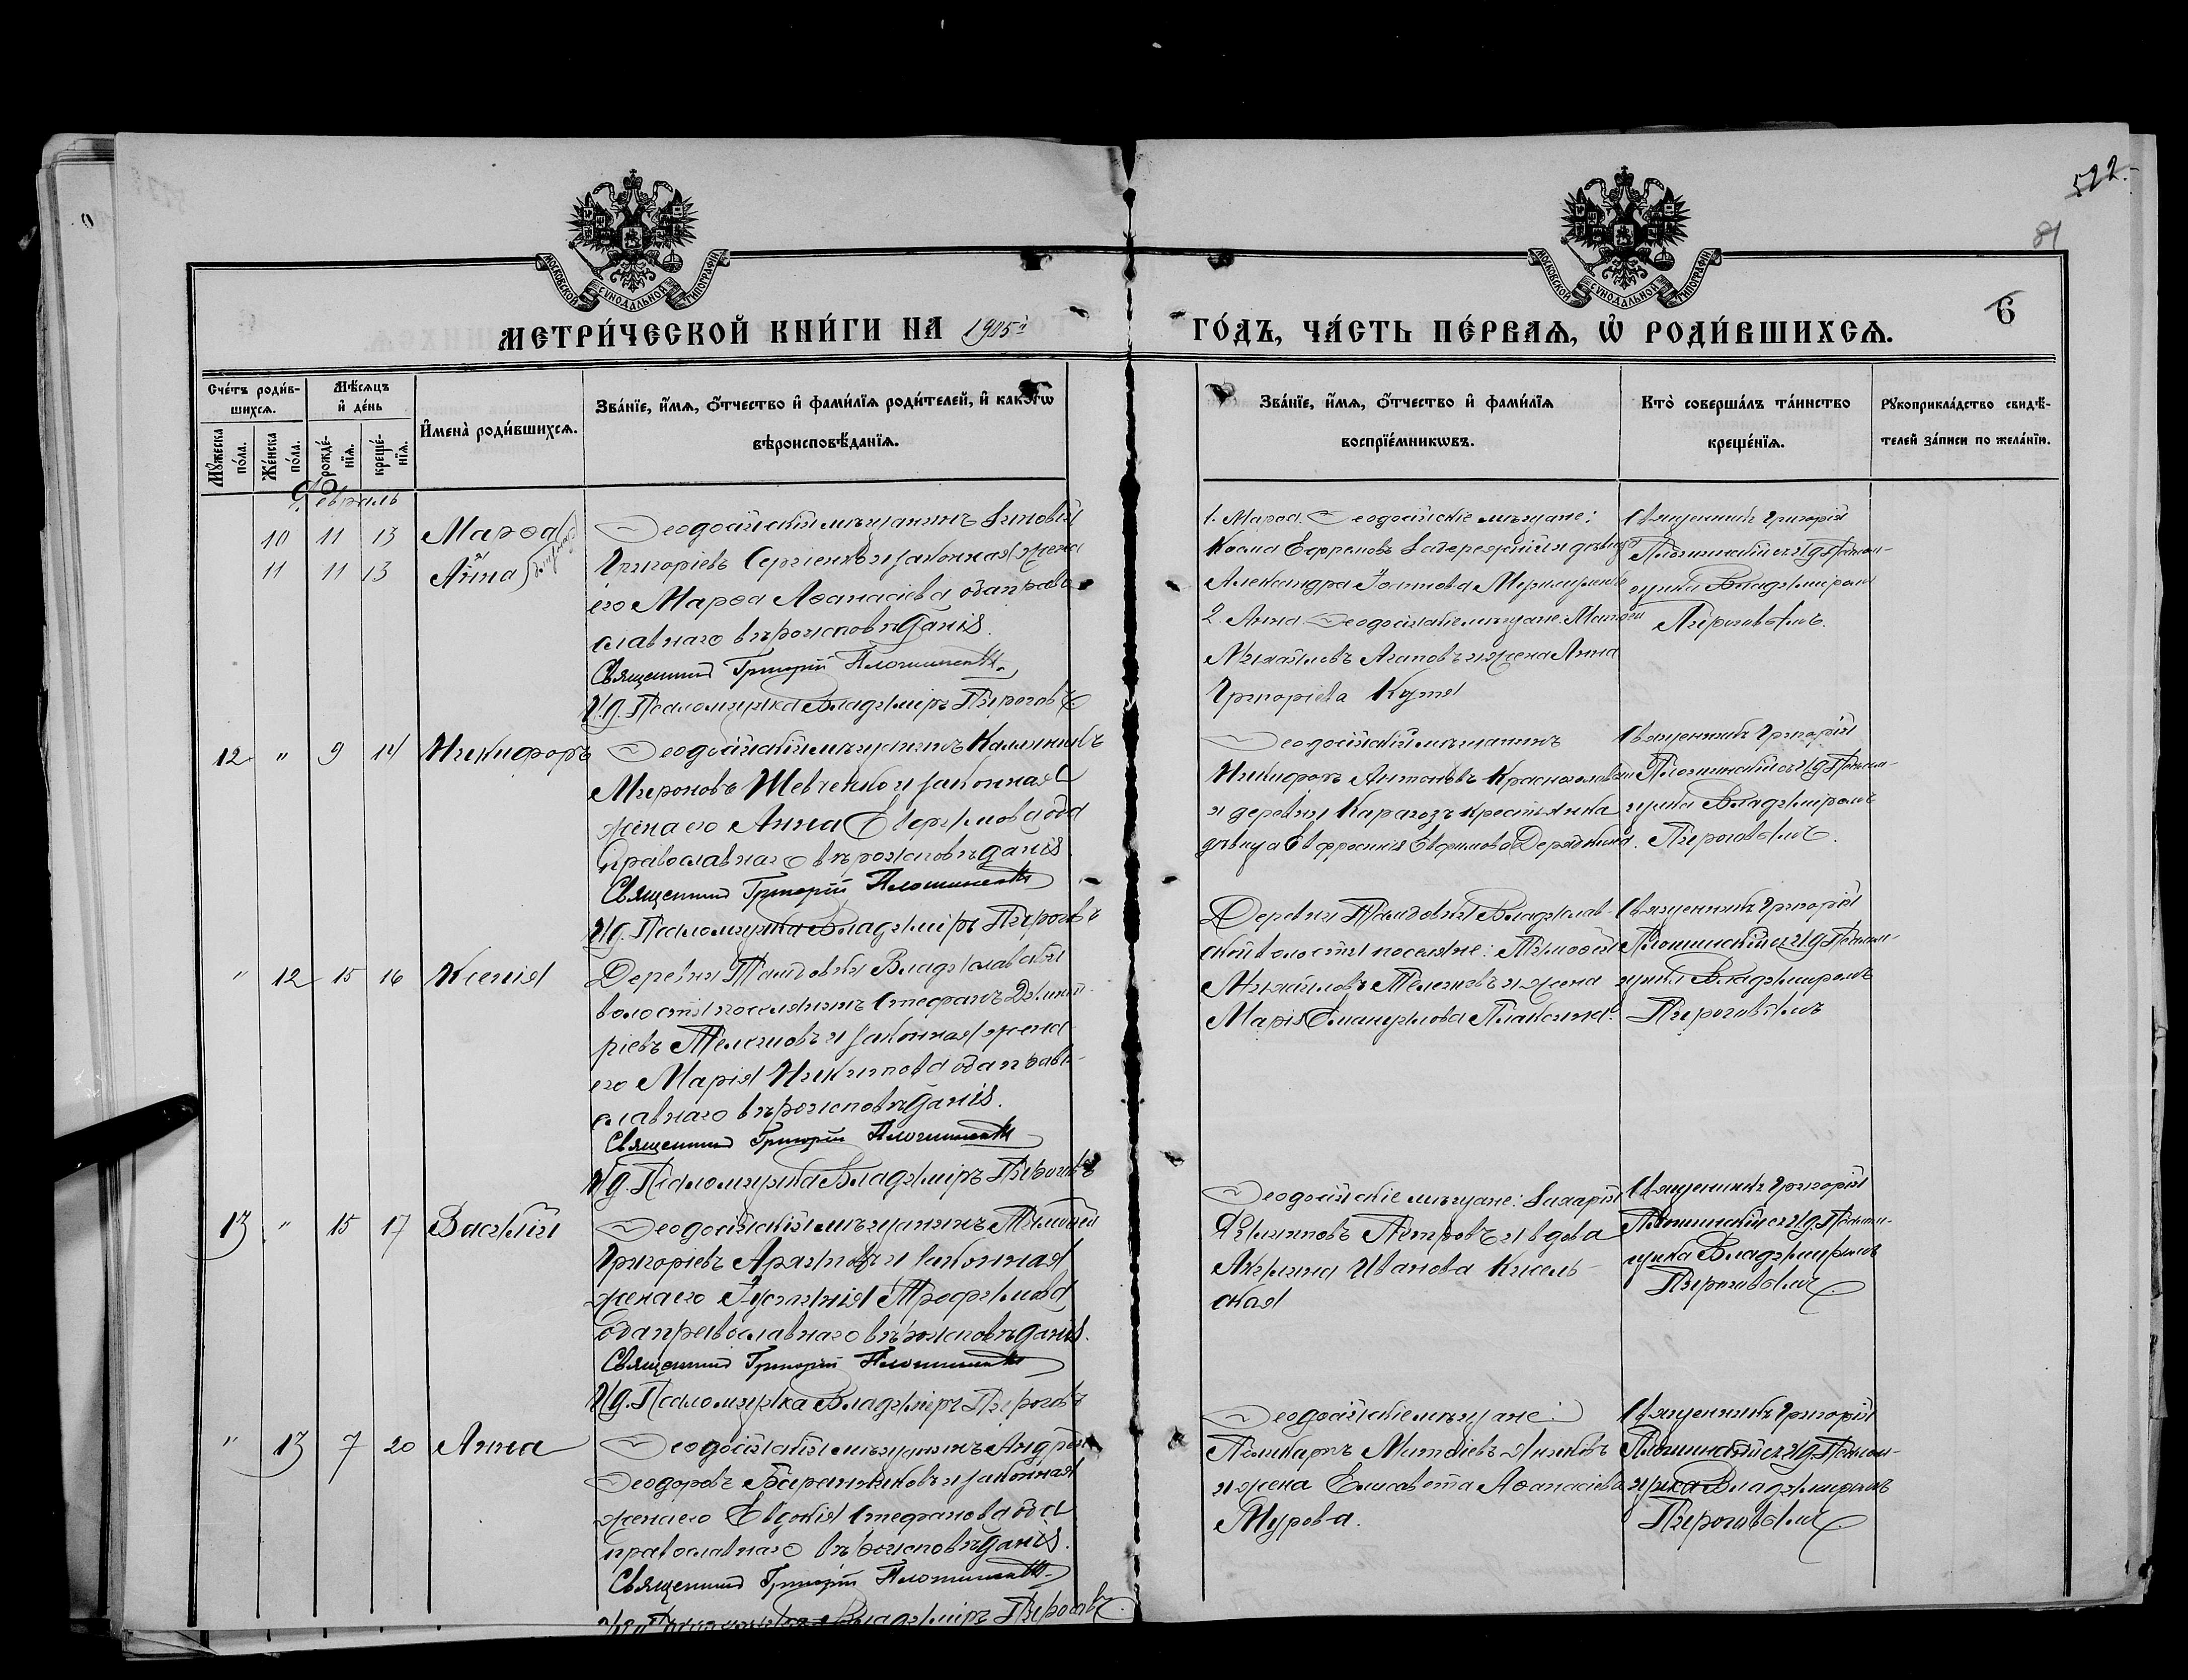 522.
81
6
МОСКОВСКОЙ СѴНОДАЛЬНОЙ ТИПОГРАФІИ
МОСКОВСКОЙ СѴНОДАЛЬНОЙ ТИПОГРАФІИ
МЕТРИ́ЧЕСКОЙ КНИ́ГИ НА 1905й
ГО́ДЪ, ЧА́СТЬ ПЕ́РВАѦ, Ѡ҆ РОДИ́ВШИХСѦ.
Сче́тъ роди́в-
шихсѧ.
Мꙋ́жеска по́ла.
Же́нска по́ла.
Мѣ́сѧцъ
и҆ де́нь
рожде́-нїѧ.
креще́-нїѧ.
И҆мена̀ роди́вшихсѧ.
Зва́нїе, и҆́мѧ, ѻ҆́тчество и҆ фами́лїѧ роди́телей, и҆ како́гѡ
вѣроисповѣ́данїѧ.
Зва́нїе, и҆́мѧ, ѻ҆́тчество и҆ фами́лїѧ
воспрїе́мникѡвъ.
Кто̀ соверша́лъ та́инство
креще́нїѧ.
Рꙋкоприкла́дство свидѣ́-
телей за́писи по жела́нїю.
Февраль
10 11 13 Марѳа
11 11 13 Анна
Ѳеодосійскій мѣщанинъ Зиновій
Григоріевъ Сергіенко и законная жена
его Марѳа Аѳанасіева оба право-
славнаго вѣроисповѣданія.
Священникъ Григорій
И. д. Псаломщика Владиміръ Пироговъ
1. Марѳа. Ѳеодосійскіе мѣщане:
Косма Ефремовъ и дѣвица
Александра
2. Анна. Ѳеодосійскіе мѣщане: Матѳей
Михайловъ Агаповъ и жена Анна
Григоріева
Священникъ Григорій
съ И. д. Псалом-
щика Владиміромъ
Пироговымъ.
12 " 9 14 Никифоръ
Ѳеодосійскій мѣщанинъ Каллиникъ
Мироновъ Шевченко и законная
жена его Анна оба
православнаго вѣроисповѣданія.
Священникъ Григорій
И. д. Псаломщика Владиміръ Пироговъ
Ѳеодосійскій мѣщанинъ
Никифоръ Антоновъ
и деревни Карагозъ крестьянка
дѣвица Евфросинія Евфимова
Священникъ Григорій
съ И. д. Псалом-
щика Владиміромъ
Пироговымъ.
" 12 15 16 Ксенія
Деревни Владиславской
волости поселянинъ Стефанъ Димит-
ріевъ и законная жена
его Марія Никитова оба право-
славнаго вѣроисповѣданія.
Священникъ Григорій
И. д. Псаломщика Владиміръ Пироговъ
Деревни Владислав-
ской волости поселяне: Тимоѳей
Михайловъ и жена
Марія
Священникъ Григорій
съ И. д. Псалом-
щика Владиміромъ
Пироговымъ
13 " 15 17 Василій
Ѳеодосійскій мѣщанинъ Тимоѳей
Григоріевъ и законная
жена его Трофимова
оба православнаго вѣроисповѣданія.
Священникъ Григорій
И. д. Псаломщика Владиміръ Пироговъ
Ѳеодосійскіе мѣщане: Захарій
Филипповъ Петровъ и вдова
Акилина Иванова Кисель-
ская
Священникъ Григорій
съ И. д. Псалом-
щика Владиміромъ
Пироговымъ.
" 13 7 20 Анна
Ѳеодосійскій мѣщанинъ Андрей
Ѳеодоровъ Баранниковъ и законная
жена его Евдокія Стефанова оба
православнаго вѣроисповѣданія.
Священникъ Григорій
И. д. Псаломщика Владиміръ Пироговъ.
Ѳеодосійскіе мѣщане:
Поликарпъ Матѳіевъ
и жена Елисавета Аѳанасіева
Священникъ Григорій
съ И. д. Псалом-
щика Владиміромъ
Пироговымъ.